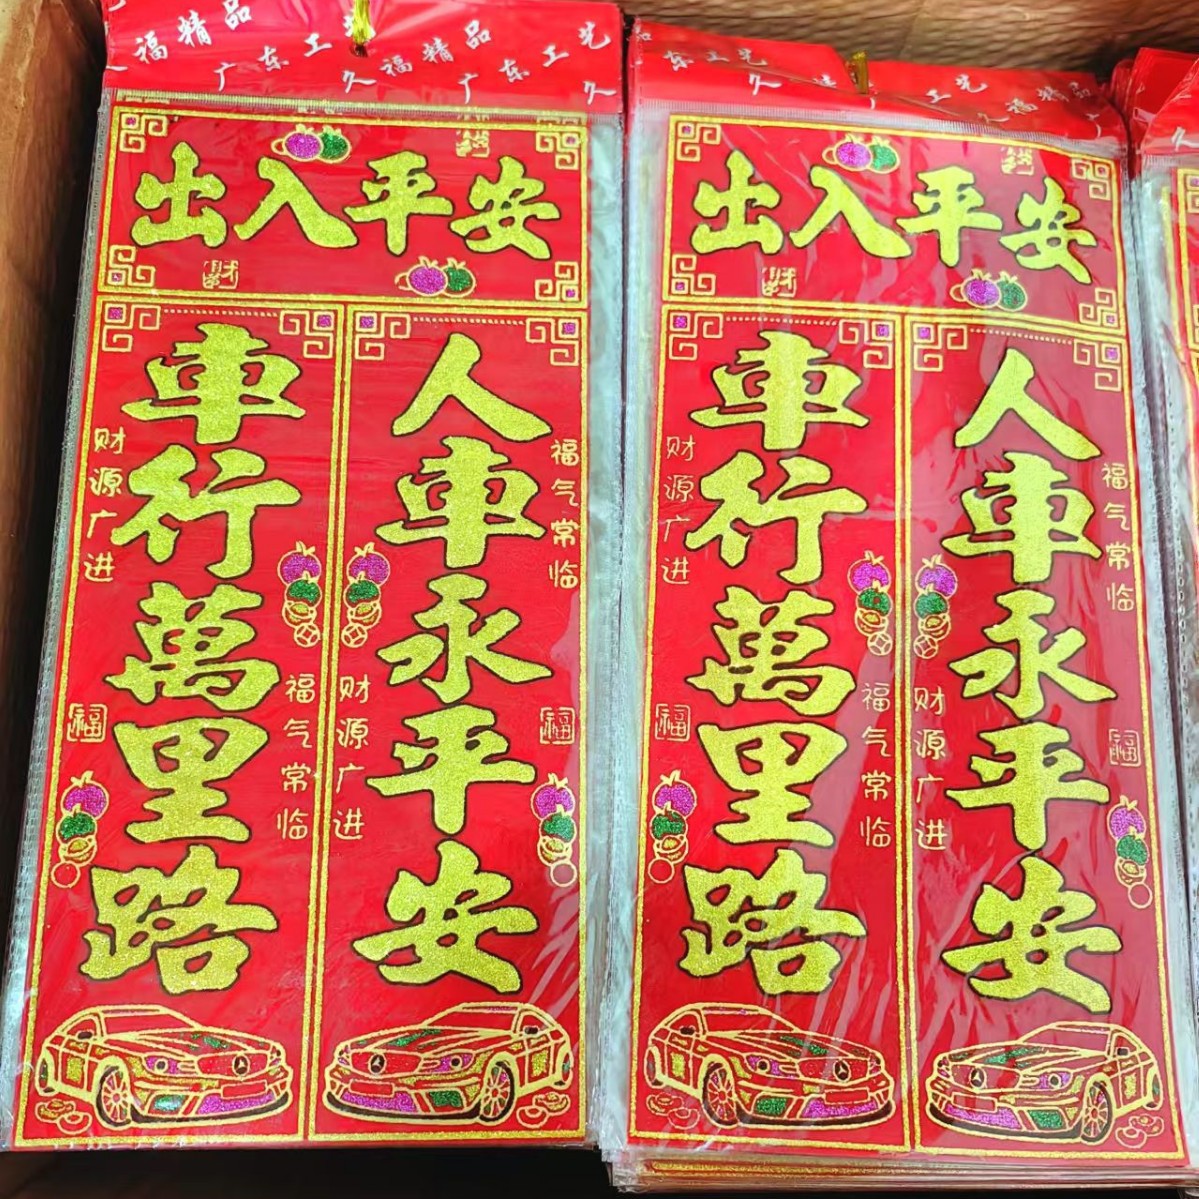 福精品 广东工艺 久福精品 广东工艺 久
出入平安
财
車行萬里路
人車永平安
财源广进
福气常临
福
福气常临
财源广进
福
东工艺 久 工艺 久福精品
出入平安
财
車行萬里路
人車永平安
财源广进
福气常临
福
福气常临
财源广进
福